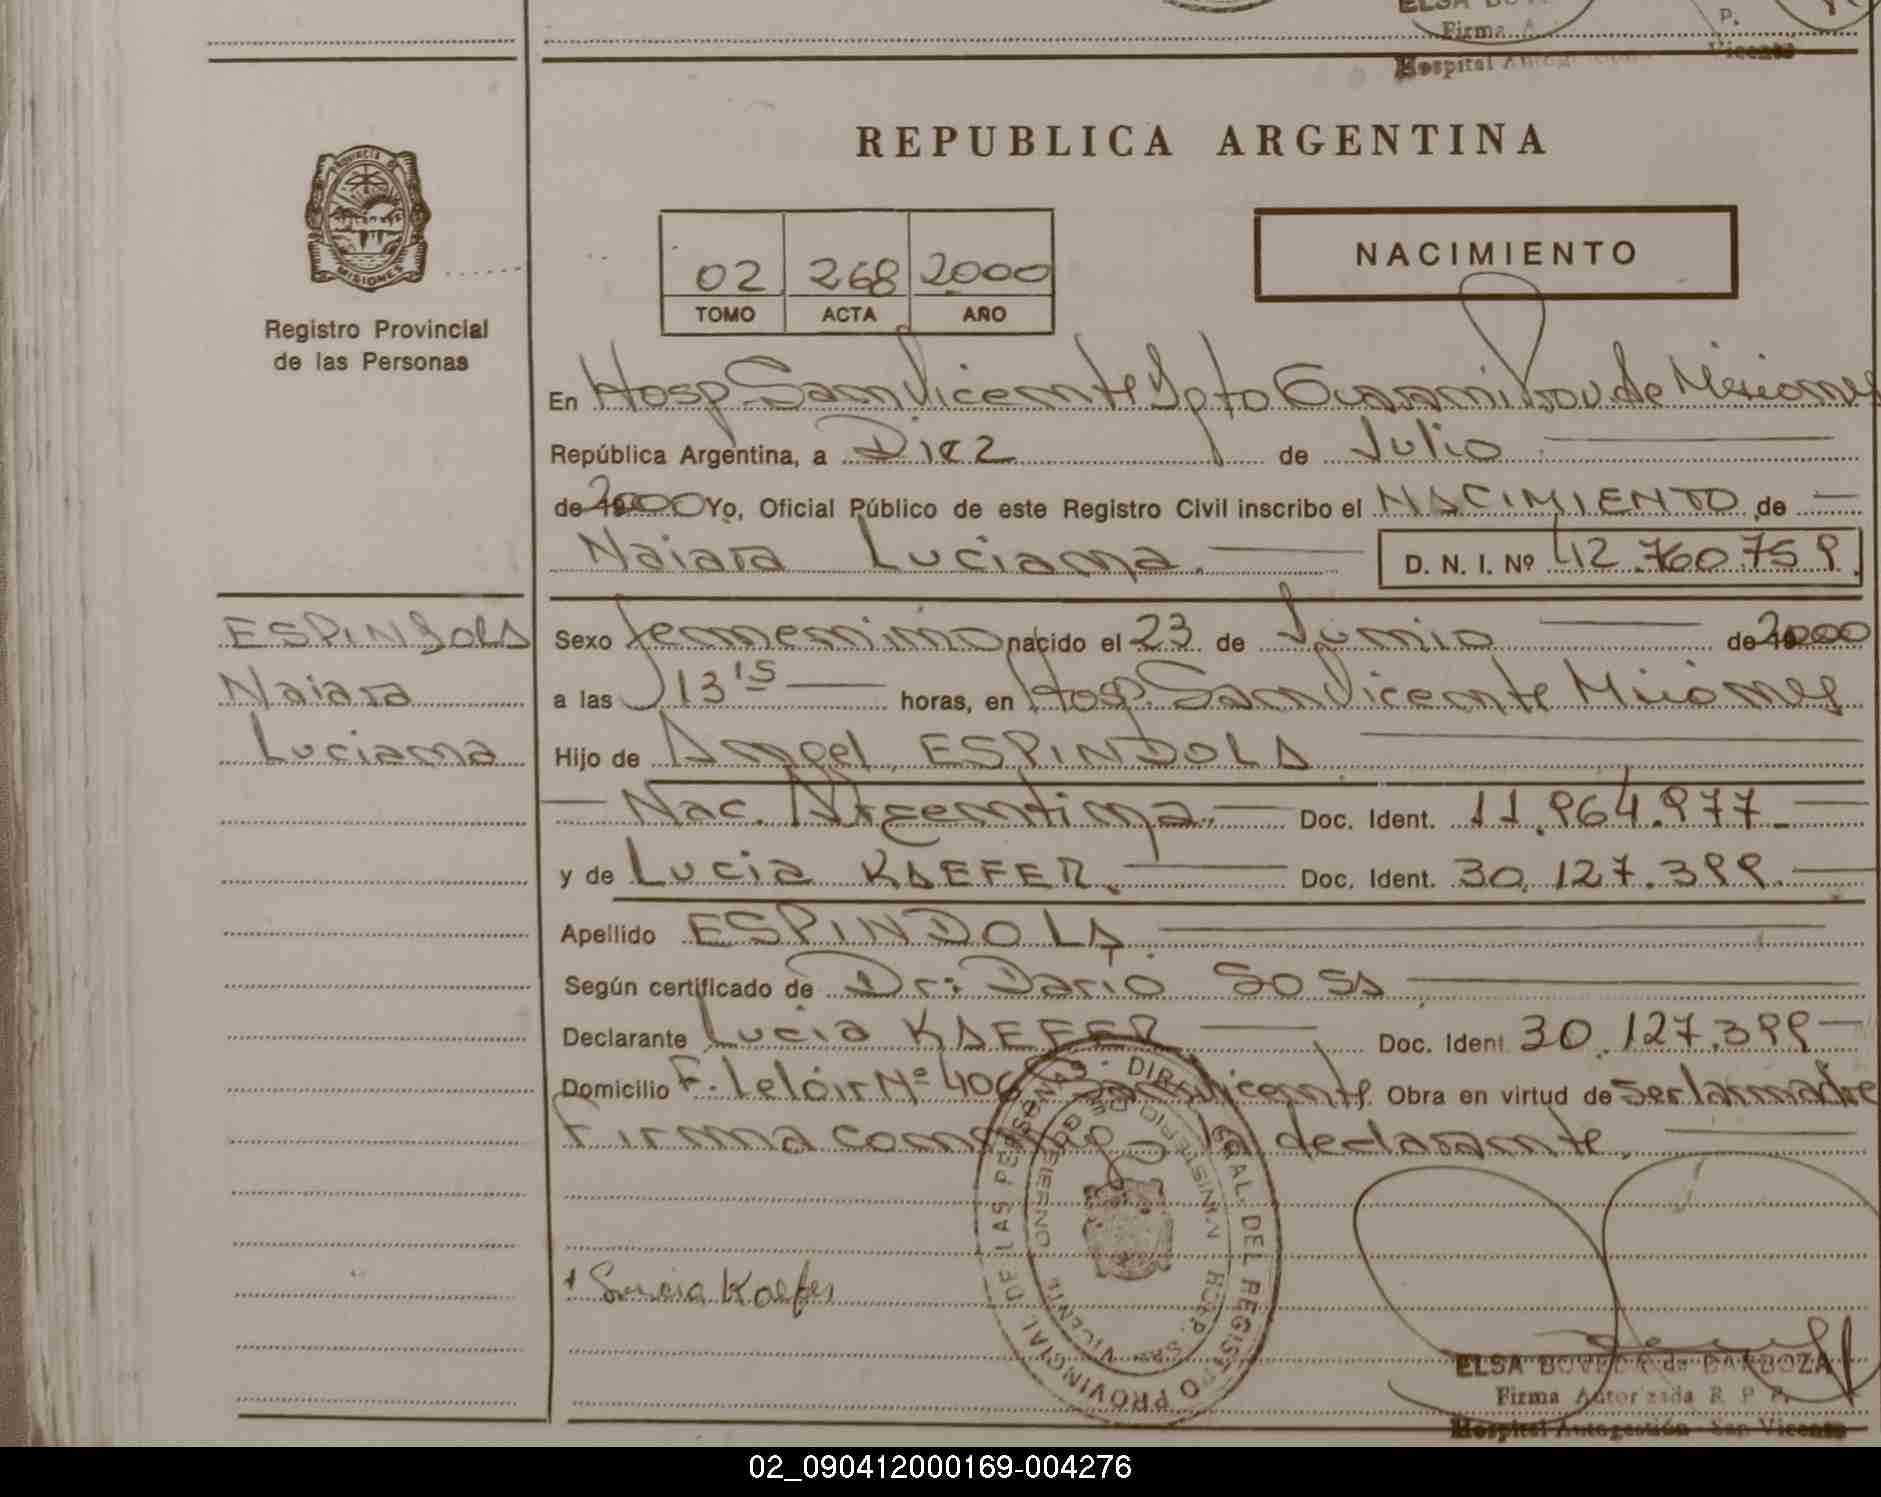 Firma A
P.
Hospital
Vicente
REPUBLICA ARGENTINA
PROVINCIA DE
MISIONES
Registro Provincial
de las Personas
02 268 2000
TOMO ACTA AÑO
NACIMIENTO
En Hosp San Vicente Dpto Guarani Prov de Misiones
República Argentina, a Diez de Julio
de 2000 Yo, Oficial Público de este Registro Civil inscribo el NACIMIENTO de
Naiara Luciana. D. N. I. Nº 42.760.759
ESPINDOLA
Naiara
Luciana
Sexo femenino nacido el 23 de Junio de 2000
a las 13 15 horas, en Hosp. San Vicente Misiones
Hijo de Angel ESPINDOLA
Nac. Argentina. Doc. Ident. 11.964.977
y de Lucia KAEFER. Doc. Ident. 30.127.399
Apellido ESPINDOLA
Según certificado de Dr: Dario SOSA
Declarante Lucia KAEFER Doc. Ident 30.127.399
Domicilio F. Leloir Nº 406 San Vicente. Obra en virtud de ser la madre
Firma conmigo la declarante.
DIR. GRAL. DEL REGISTRO PROVINCIAL DE LAS PERSONAS
MINISTERIO DE GOBIERNO
HOSP. SAN VICENTE
Lucia Kaefer
ELSA BOVEDA de BARBOZA
Firma Autorizada R. P. P.
Hospital Autogestión - San Vicente
02_090412000169-004276